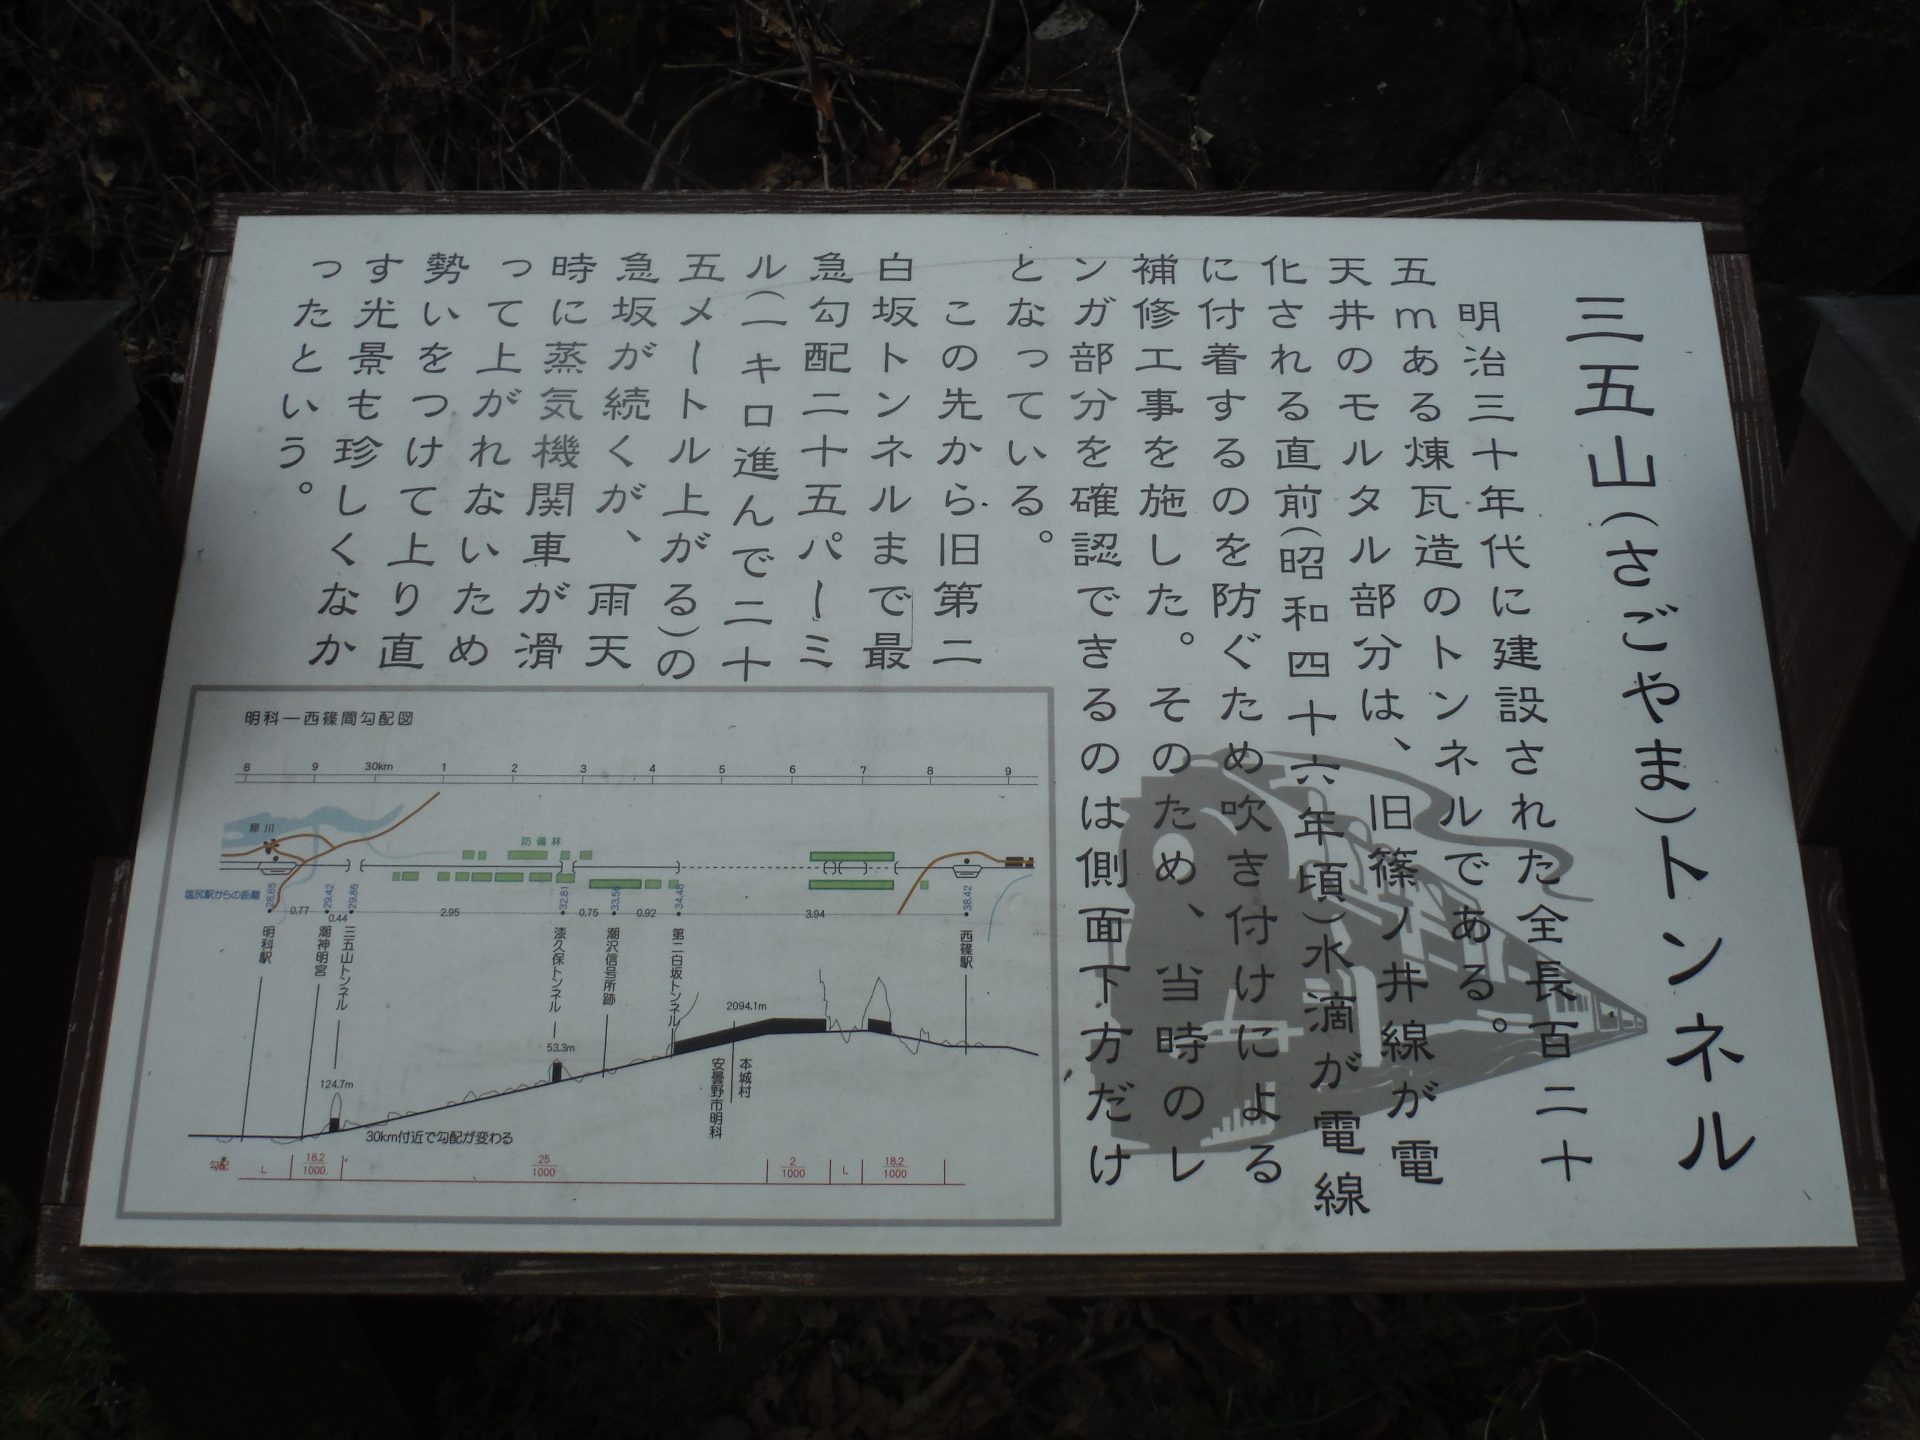 三五山(さごやま)トンネル
明治三十年代に建設された全長百二十
五mある煉瓦造のトンネルである。
天井のモルタル部分は、旧篠ノ井線が電
化される直前(昭和四十六年頃)水滴が電線
に付着するのを防ぐため吹き付けによる
補修工事を施した。そのため、当時のレ
ンガ部分を確認できるのは側面下方だけ
となっている。
この先から旧第二
白坂トンネルまで最
急勾配二十五パーミ
ル(一キロ進んで二十
五メートル上がる)の
急坂が続くが、雨天
時に蒸気機関車が滑
って上がれないため
勢いをつけて上り直
す光景も珍しくなか
ったという。
明科―西篠間勾配図
8 9 30km 1 2 3 4 5 6 7 8 9
犀川
防備林
塩尻駅からの距離
28.65 29.42 29.86 32.81 33.56 34.48 38.42
0.77 0.44 2.95 0.75 0.92 3.94
明科駅
潮神明宮
三五山トンネル
漆久保トンネル
潮沢信号所跡
第二白坂トンネル
西篠駅
2094.1m
53.3m
124.7m
本城村
安曇野市明科
30km付近で勾配が変わる
勾配 L 18.2/1000 25/1000 2/1000 L 18.2/1000